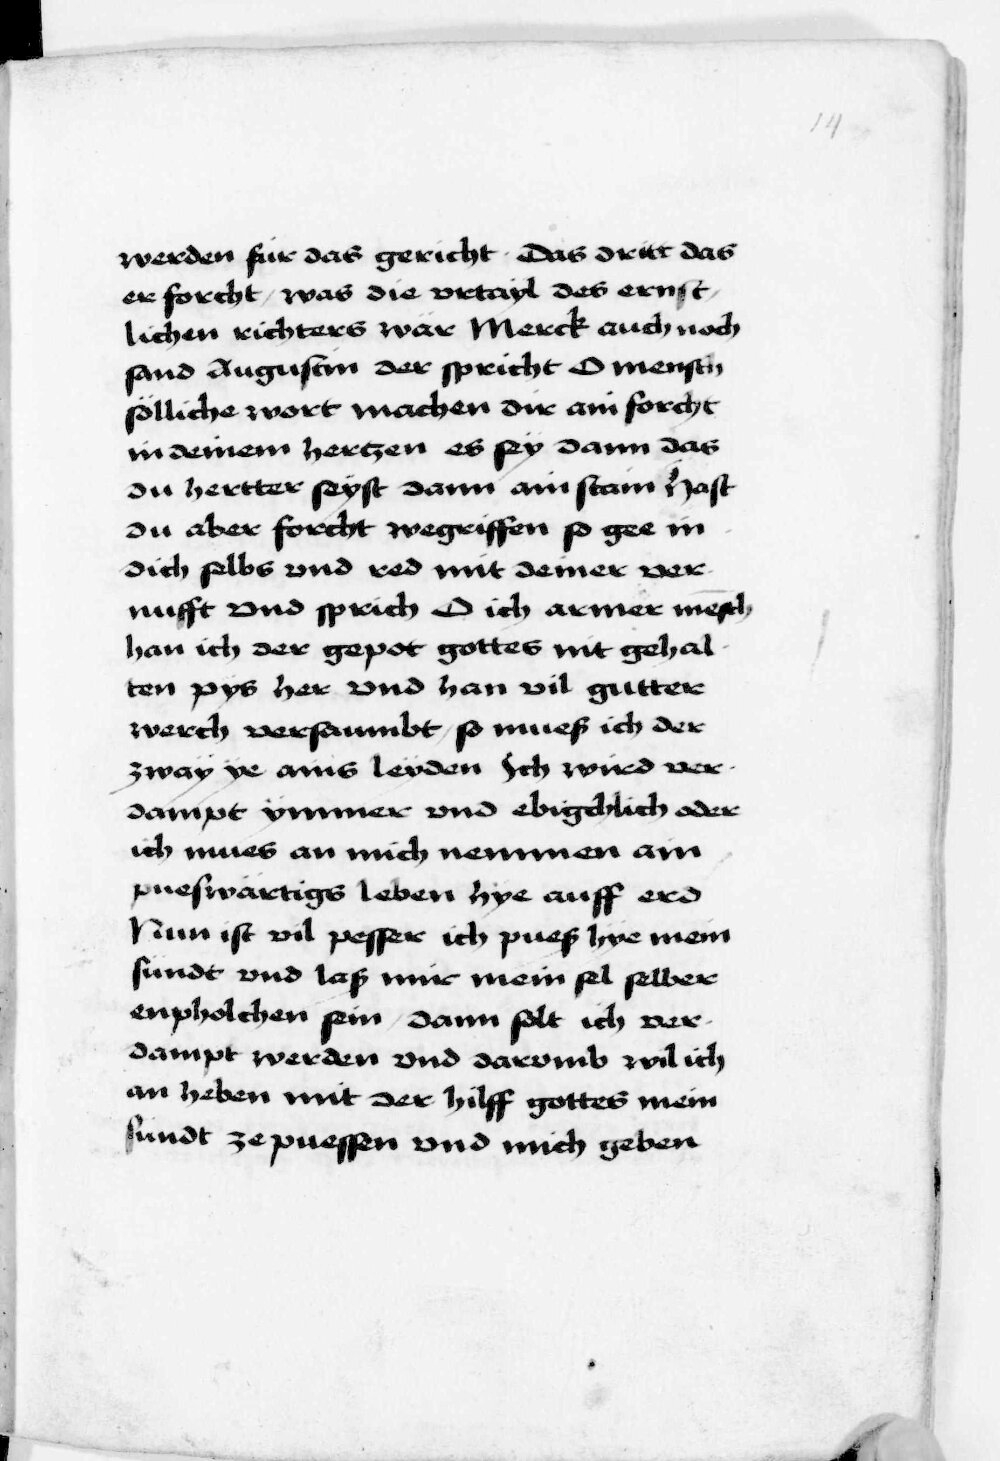 14
werden für das gericht · Das dritt das
er forcht / was die vrtayl des ernst /
lichen richters wär Merck auch noch
sand Augustin der spricht O mensch
sölliche wort machen dir ain forcht
in deinem hertzen es sey dann das
du hertter seyst dann ain stain Hast
du aber forcht wegriffen so gee in
dich selbs vnd red mit deiner ver-
nufft vnd sprich O ich armer mēsch
han ich der gepot gottes nit gehal-
ten pys her vnd han vil gutter
werch versaumbt / so mueß ich der
zway ye ains leyden Ich wird ver-
dampt ymmer vnd ebigchlich oder
ich mues an mich nemmen ain
pueswärtigs leben hye auff erd
Nun ist vil pesser ich pueß hye mein
sündt vnd laß mir mein sel selber
enpholchen sein / dann solt ich ver-
dampt werden vnd darvmb wil ich
an heben mit der hilff gottes mein
sündt ze puessen vnd mich geben